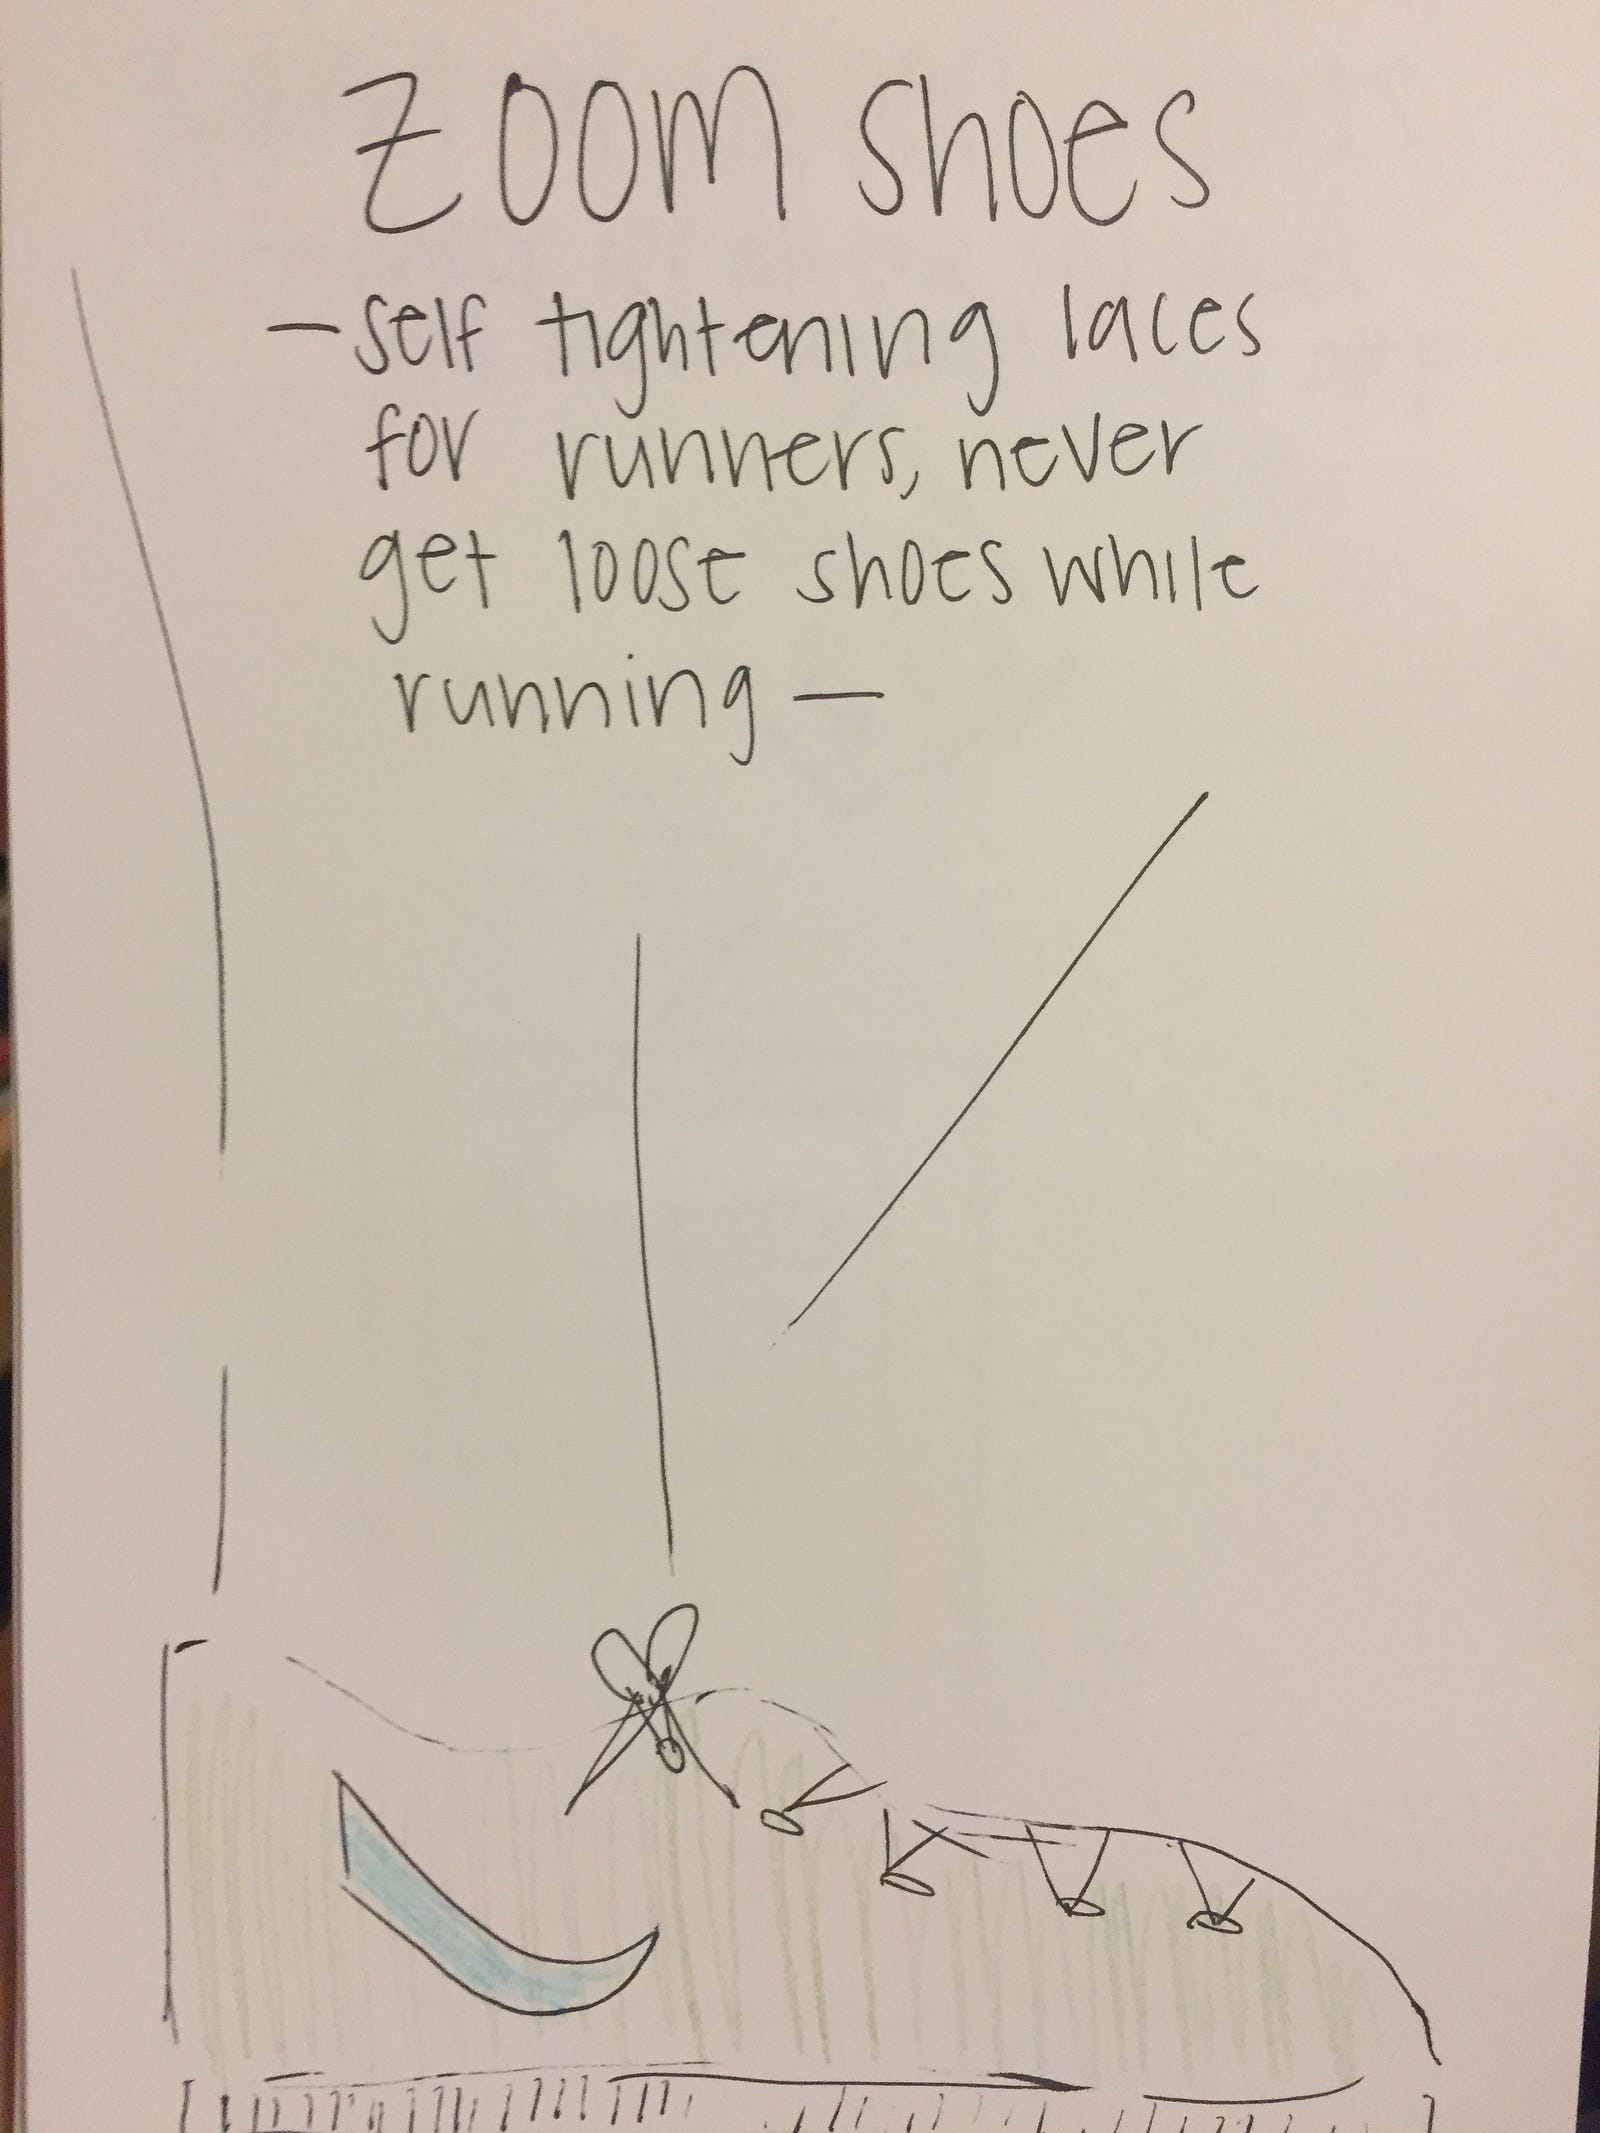 zoom shoes
-self tightening laces
for runners, never
get loose shoes while
running-